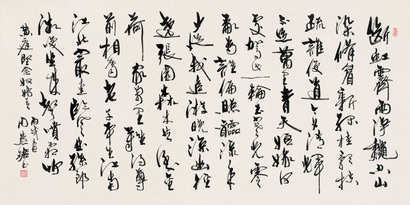 断虹霁雨净秋空山
染修眉新绿桂影扶
疏谁便道今夕清辉
不足万里青天姮娥何
处驾此一轮玉寒光零
乱为谁偏照醽醁年
少从我追游晚凉幽径
绕张园森木共倒金
荷家万里难得尊
前相属老子平生江南
江北最爱临风曲孙郎
微笑坐来声喷霜竹
黄庭坚念奴娇